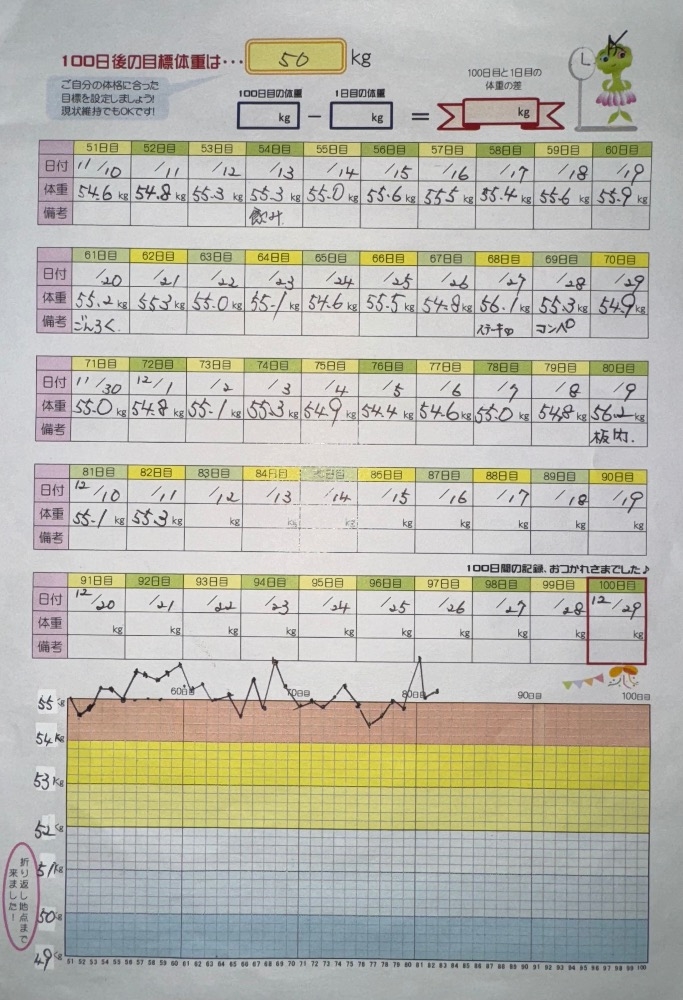 100日後の目標体重は・・・ 50 kg
ご自分の体格に合った
目標を設定しましょう!
現状維持でもOKです!
100日目の体重 1日目の体重 100日目と1日目の
体重の差
kg − kg = kg
51日目 52日目 53日目 54日目 55日目 56日目 57日目 58日目 59日目 60日目
日付 11/10 /11 /12 /13 /14 /15 /16 /17 /18 /19
体重 54.6 kg 54.8 kg 55.3 kg 55.3 kg 55.0 kg 55.6 kg 55.5 kg 55.4 kg 55.6 kg 55.9 kg
備考 飲み
61日目 62日目 63日目 64日目 65日目 66日目 67日目 68日目 69日目 70日目
日付 /20 /21 /22 /23 /24 /25 /26 /27 /28 /29
体重 55.2 kg 55.3 kg 55.0 kg 55.1 kg 54.6 kg 55.5 kg 54.8 kg 56.1 kg 55.3 kg 54.9 kg
備考 ごんろく. コンペ
71日目 72日目 73日目 74日目 75日目 76日目 77日目 78日目 79日目 80日目
日付 11/30 12/1 /2 /3 /4 /5 /6 /7 /8 /9
体重 55.0 kg 54.8 kg 55.1 kg 55.3 kg 54.9 kg 54.4 kg 54.6 kg 55.0 kg 54.8 kg 56.2 kg
備考
81日目 82日目 83日目 84日目 86日目 87日目 88日目 89日目 90日目
日付 12/10 /11 /12 /13 /14 /15 /16 /17 /18 /19
体重 55.1 kg 55.3 kg kg kg kg kg kg kg kg kg
備考
100日間の記録、おつかれさまでした♪
91日目 92日目 93日目 94日目 95日目 96日目 97日目 98日目 99日目 100日目
日付 12/20 /21 /22 /23 /24 /25 /26 /27 /28 12/29
体重 kg kg kg kg kg kg kg kg kg kg
備考
60日目 70日目 80日目 90日目 100日目
55 kg
54 kg
53 kg
52 kg
51 kg
50 kg
49 kg
折り返し地点まで
来ました!
51 52 53 54 55 56 57 58 59 60 61 62 63 64 65 66 67 68 69 70 71 72 73 74 75 76 77 78 79 80 81 82 83 84 85 86 87 88 89 90 91 92 93 94 95 96 97 98 99 100